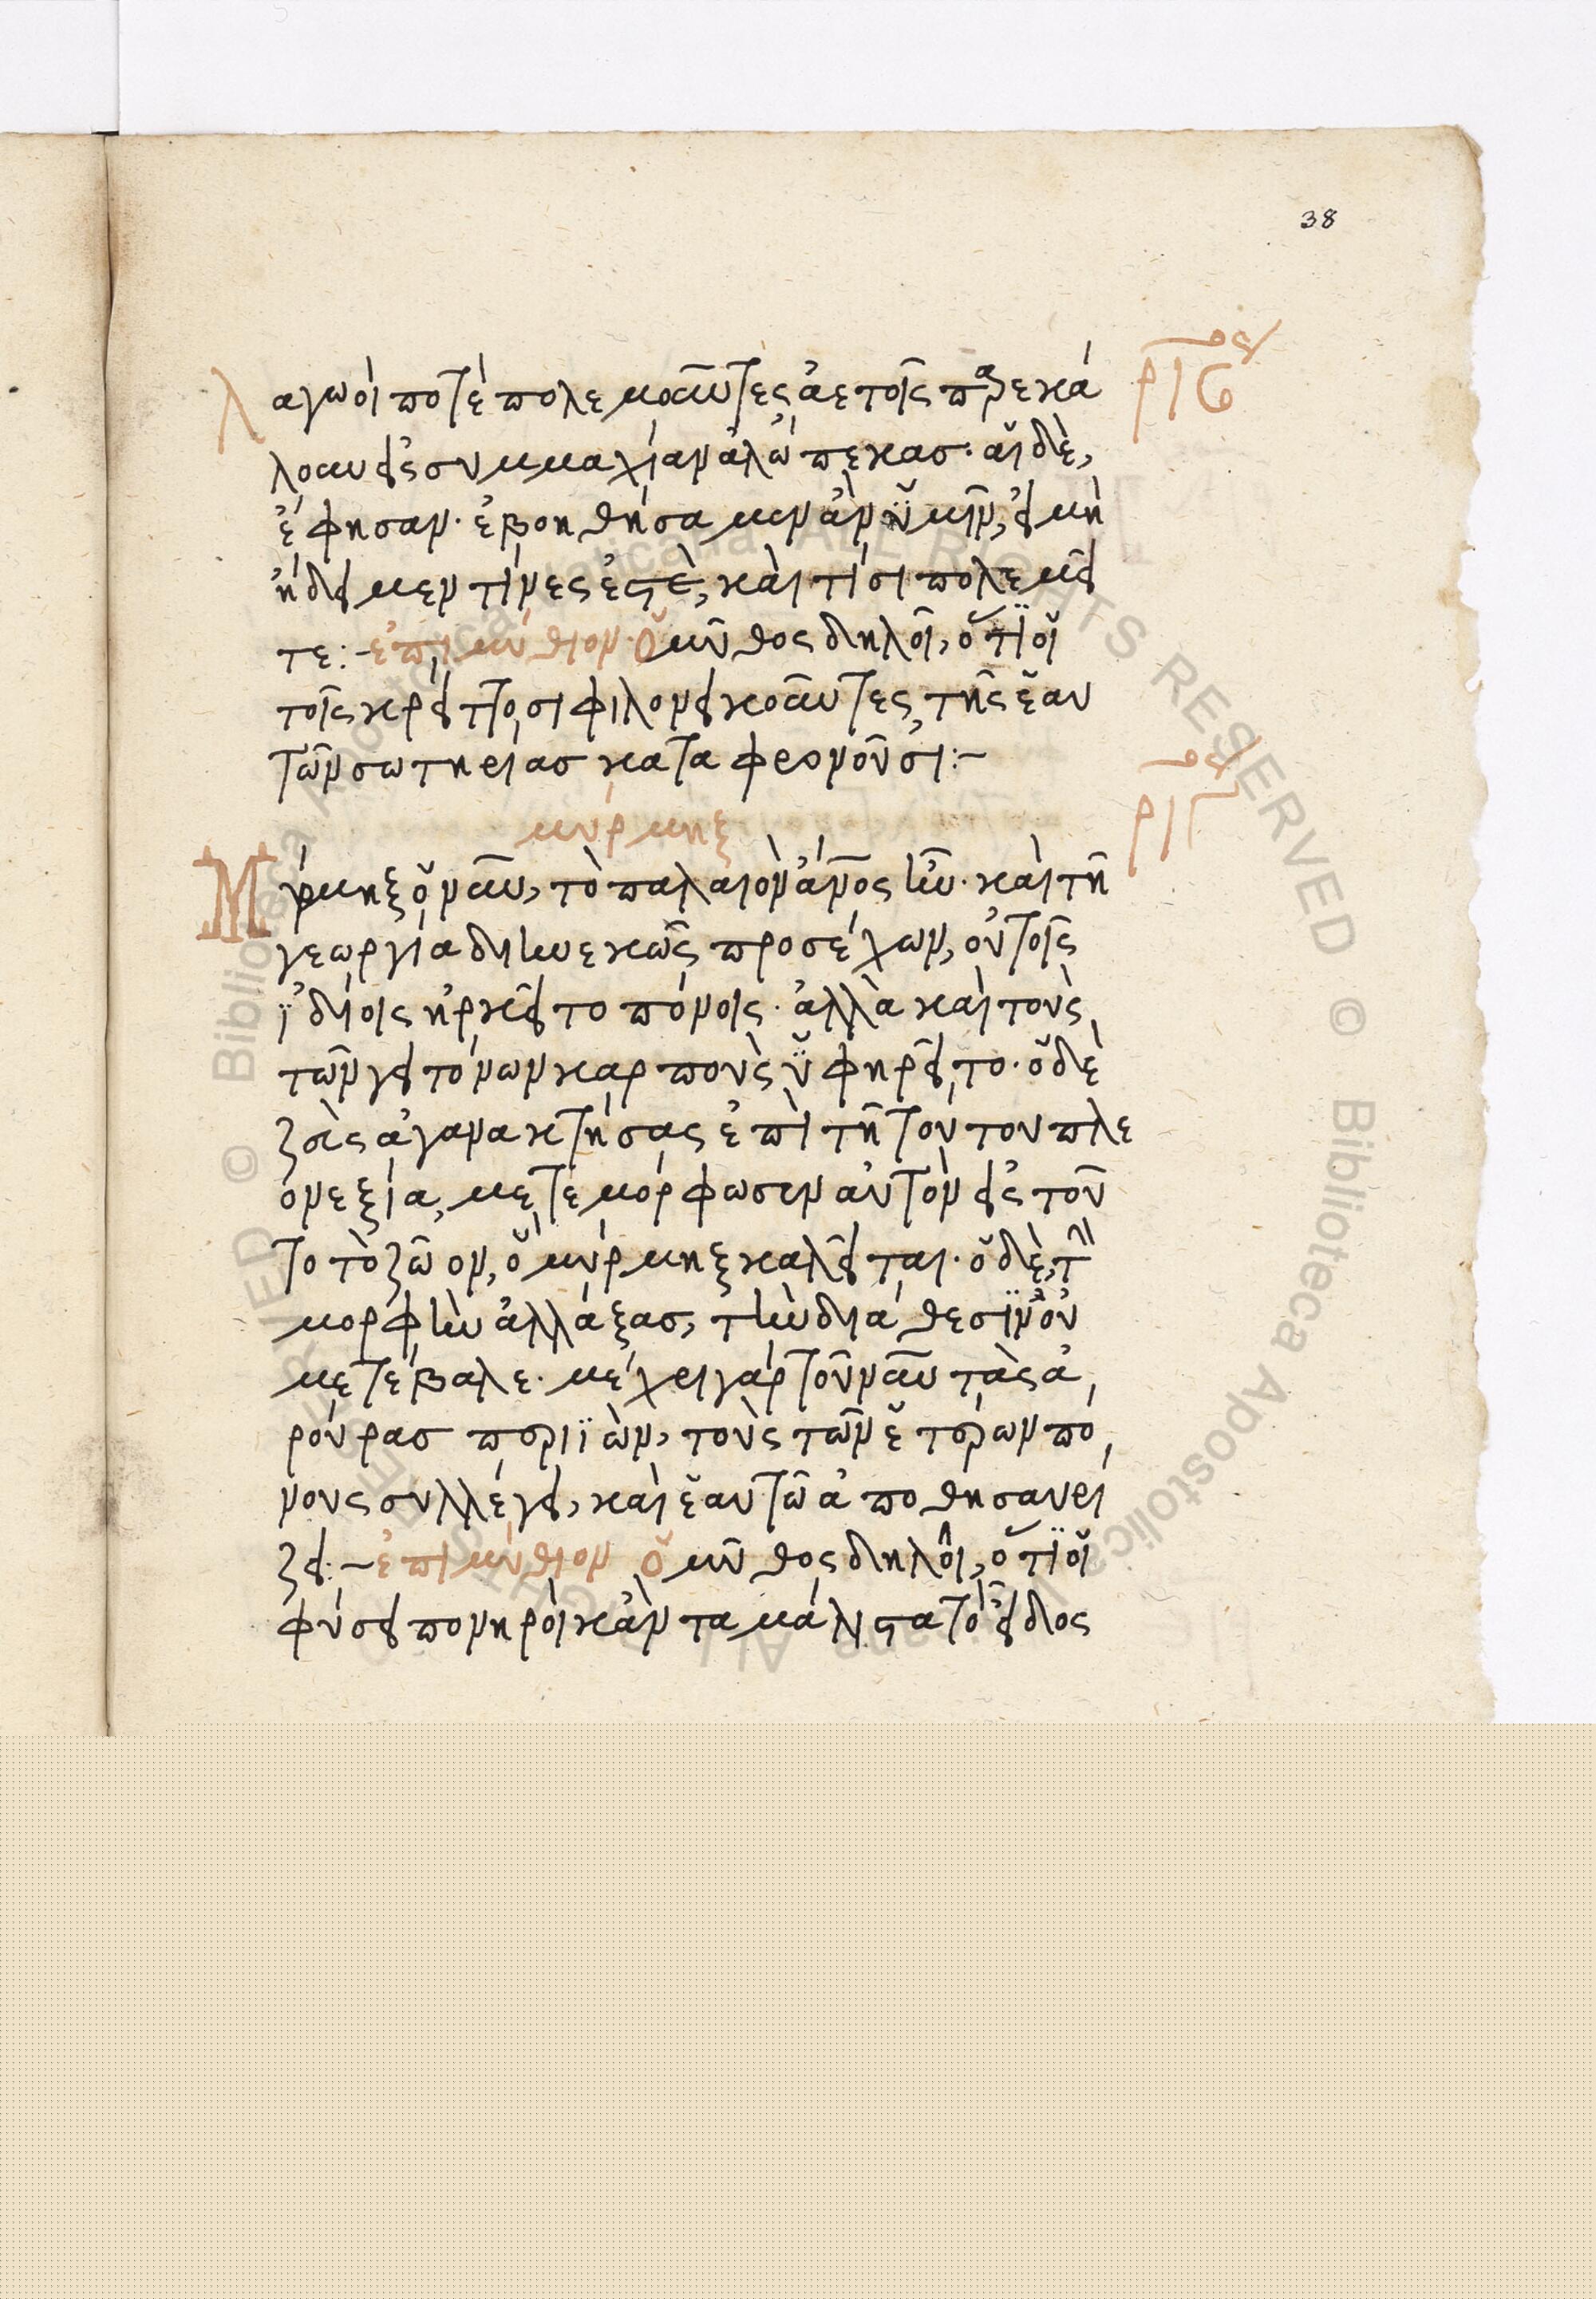 38
λαγωοί ποτὲ πολεμοῦντες ἀετοῖς παρεκά
λουν εἰς συμμαχίαν ἀλώπεκασ· αἱ δὲ,
ἔφησαν· ἐβοηθήσαμεν ἂν ὑμῖν, εἰ μὴ
ἤδειμεν τίνες ἐστὲ, καὶ τίσι πολεμεῖ
τε:- ἐπιμύθιον· ὁ μῦθος δηλοῖ, ὅτι οἱ
τοῖς κρείττοσι φιλονεικοῦντες, τῆς ἑαυ
τῶν σωτηρίασ καταφρονοῦσι:-
ριϛον
μύρμηξ
ριζον
Μύρμηξ ὁ νῦν, τὸ παλαιὸν ἄνος ἦν· καὶ τῆ
γεωργία διηνεκῶς προσέχων, οὐ τοῖς
ἰδίοις ἠρκεῖτο πόνοις· ἀλλὰ καὶ τοὺς
τῶν γειτόνων καρποὺς ὑφηρεῖτο· ὁ δὲ
ζεὺς ἀγανακτήσας ἐπὶ τῆ τούτου πλε
ονεξία, μετεμόρφωσεν αὐτὸν εἰς τοῦ
το τὸ ζῶον, ὃ μύρμηξ καλεῖται· ὁ δὲ, τὴν
μορφὴν ἀλλάξασ, τὴν διάθεσιν οὐ
μετέβαλε· μέχρι γὰρ τοῦ νῦν τὰς ἀ
ρούρασ περιϊὼν, τοὺς τῶν ἑτέρων πό
νους συλλέγει, καὶ ἑαυτῶ ἀποθησαυρί
ζει:- ἐπιμύθιον ὁ μῦθος δηλοῖ, ὅτι οἱ
φύσει πονηροὶ κἂν τα μάλιστα τὸ εἶδος